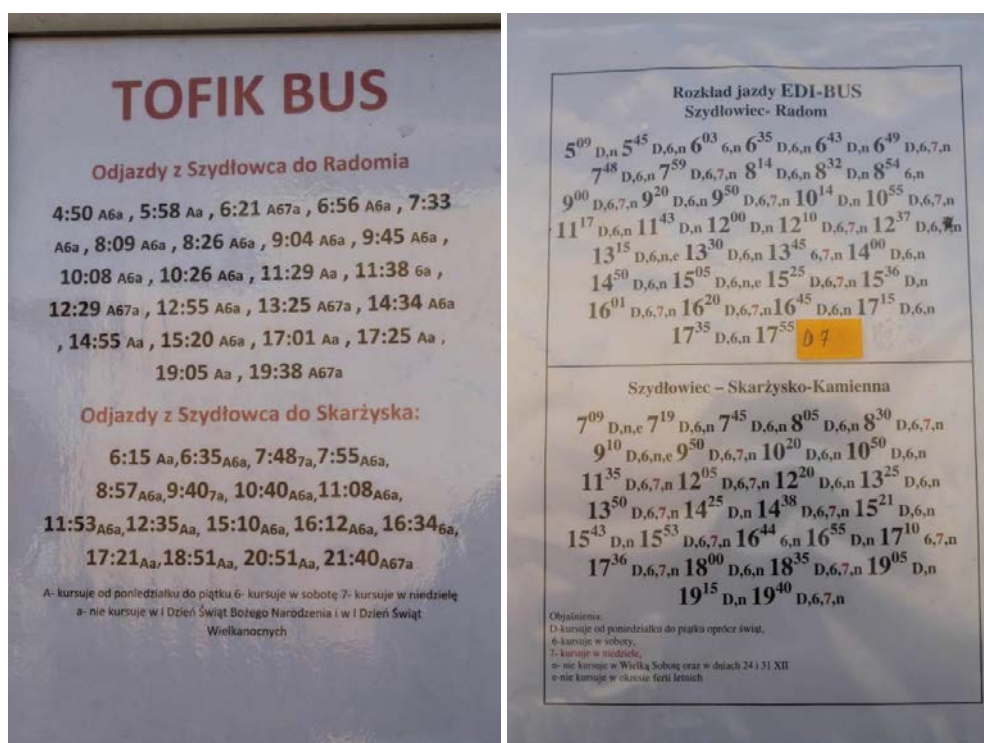 TOFIK BUS
Odjazdy z Szydłowca do Radomia
4:50 A6a , 5:58 Aa , 6:21 A67a , 6:56 A6a , 7:33
A6a , 8:09 A6a , 8:26 A6a , 9:04 A6a , 9:45 A6a ,
10:08 A6a , 10:26 A6a , 11:29 Aa , 11:38 6a ,
12:29 A67a , 12:55 A6a , 13:25 A67a , 14:34 A6a
, 14:55 Aa , 15:20 A6a , 17:01 Aa , 17:25 Aa ,
19:05 Aa , 19:38 A67a
Odjazdy z Szydłowca do Skarżyska:
6:15 Aa,6:35A6a, 7:487a,7:55A6a,
8:57A6a,9:407a, 10:40A6a,11:08A6a,
11:53A6a,12:35Aa, 15:10A6a, 16:12A6a, 16:346a,
17:21Aa,18:51Aa, 20:51Aa, 21:40A67a
A- kursuje od poniedziałku do piątku 6- kursuje w sobotę 7- kursuje w niedzielę
a- nie kursuje w I Dzień Świąt Bożego Narodzenia i w I Dzień Świąt
Wielkanocnych
Rozkład jazdy EDI-BUS
Szydłowiec- Radom
509 D,n 545 D,6,n 603 6,n 635 D,6,n 643 D,n 649 D,6,7,n
748 D,6,n 759 D,6,7,n 814 D,6,n 832 D,n 854 6,n
900 D,6,7,n 920 D,6,n 950 D,6,7,n 1014 D,n 1055 D,6,7,n
1117 D,6,n 1143 D,n 1200 D,n 1210 D,6,7,n 1237 D,6,n
1315 D,6,n,e 1330 D,6,n 1345 6,7,n 1400 D,6,n
1450 D,6,n 1505 D,6,n,e 1525 D,6,7,n 1536 D,n
1601 D,6,7,n 1620 D,6,7,n 1645 D,6,n 1715 D,6,n
1735 D,6,n 1755 D 7
Szydłowiec – Skarżysko-Kamienna
709 D,n,e 719 D,6,n 745 D,6,n 805 D,6,n 830 D,6,7,n
910 D,6,n,e 950 D,6,7,n 1020 D,6,n 1050 D,6,n
1135 D,6,7,n 1205 D,6,7,n 1220 D,6,n 1325 D,6,n
1350 D,6,7,n 1425 D,n 1438 D,6,7,n 1521 D,6,n
1543 D,n 1553 D,6,7,n 1644 6,n 1655 D,n 1710 6,7,n
1736 D,6,7,n 1800 D,6,n 1835 D,6,7,n 1905 D,n
1915 D,n 1940 D,6,7,n
Objaśnienia:
D-kursuje od poniedziałku do piątku oprócz świąt,
6-kursuje w soboty,
7- kursuje w niedziele,
n- nie kursuje w Wielką Sobotę oraz w dniach 24 i 31 XII
e-nie kursuje w okresie ferii letnich